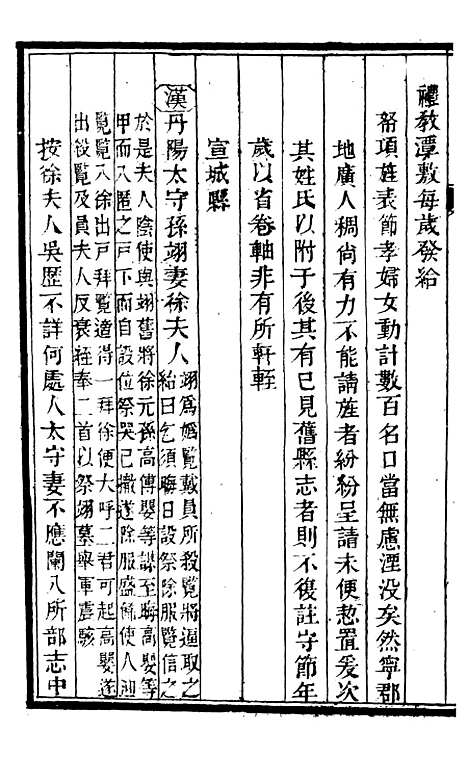 禮教潭敷每歲發給
帑項旌表節孝婦女動計數百名口當無慮湮没矣然寧郡
地廣人稠尚有力不能請旌者紛紛呈請未便恝置爰次
其姓氏以附于後其有已見舊縣志者則不復註守節年
歲以省卷軸非有所軒輊
宣城縣
漢丹陽太守孫翊妻徐夫人
翊為媯覽戴員所殺覽將逼取之
紿曰乞須晦日設祭除服覽信之
於是夫人陰使與翊舊將徐元孫高傅嬰等謀至晦高嬰等
甲而入匿之戸下而自設位祭哭已撤遂除服盛飾使人迎
覽覽入徐出戸拜覽適得一拜徐便大呼二君可起高嬰遂
出殺覽及員夫人反衰絰奉二首以祭翊墓舉軍震駭
按徐夫人吳歷不詳何處人太守妻不應闌入所部志中